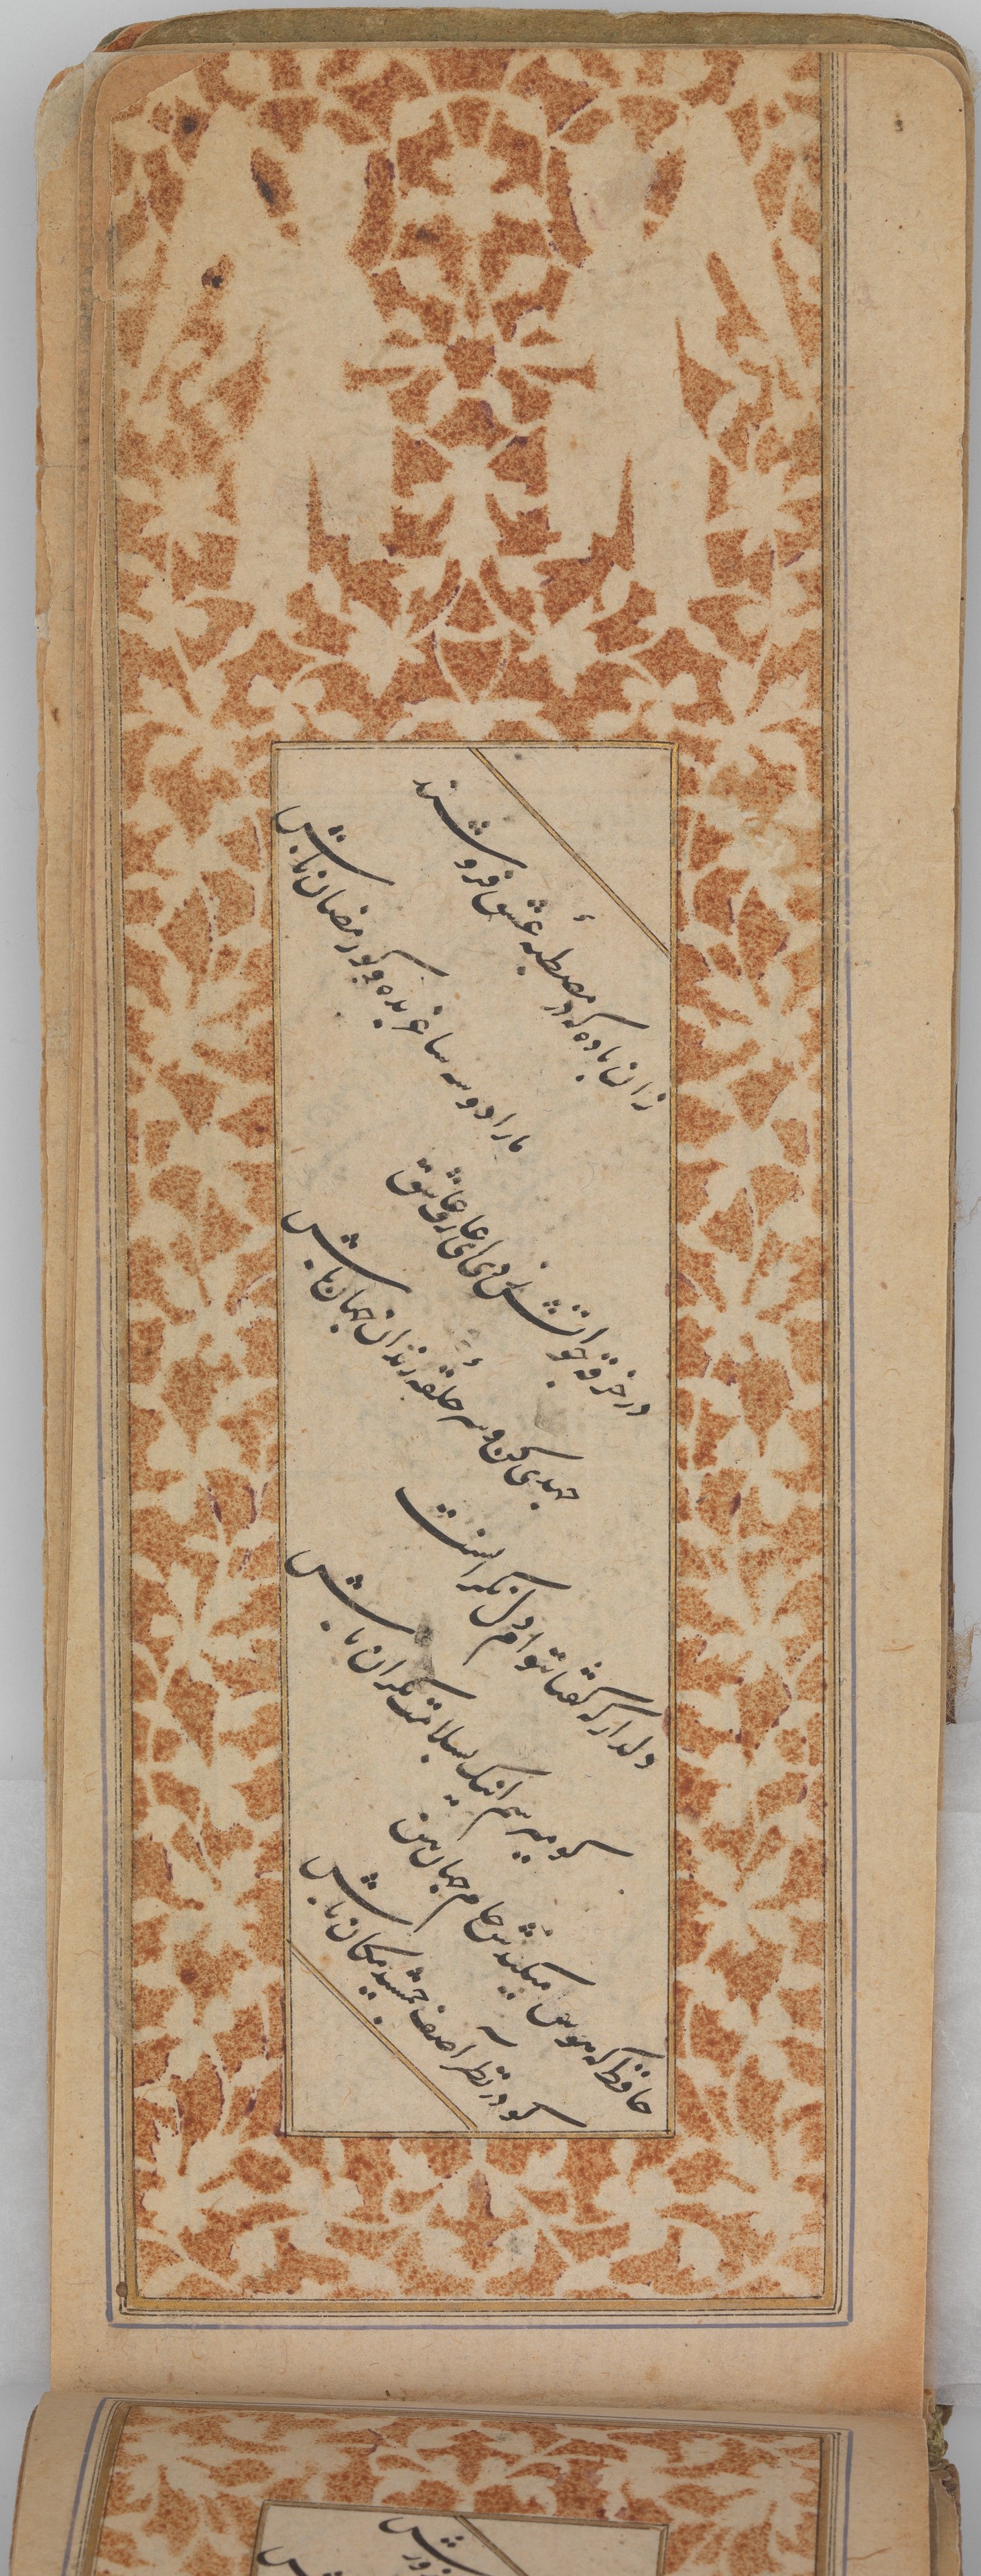 زان باده که در مصطبهٔ عشق فروشند
مارا دو سه ساغر بده و گو رمضان باش
در خرقه چو آتش زدی ای عارف عاشق
جهدی کن و سر حلقهٔ رندان جهان باش
دلدار که گفتا بتوام دل نگرانست
گو میرسم اینک بسلامت نگران باش
حافظ که هوس میکندش جام جهان بین
گو در نظر آصف جمشید مکان باش